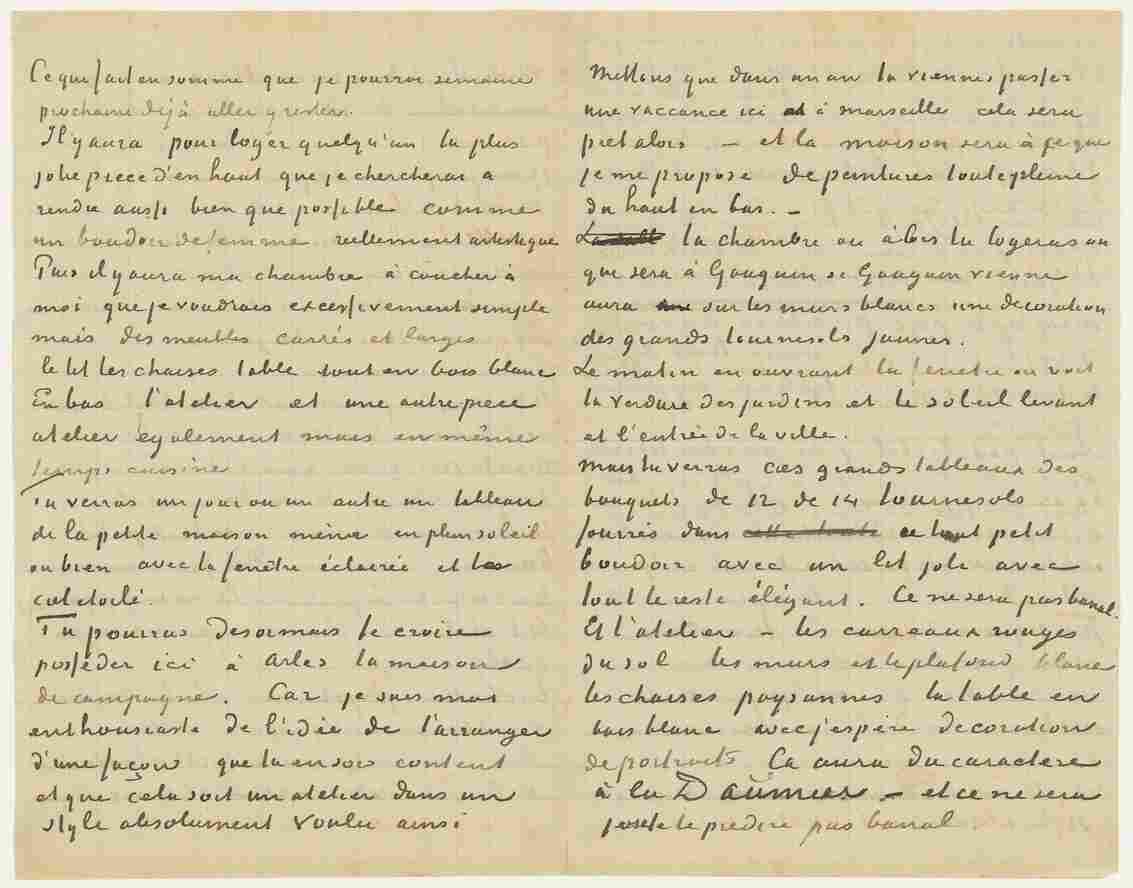 Ce qui fait en somme que je pourrai semaine
prochaine déjà aller y rester.
Il y aura pour loger quelqu'un la plus
jolie piece d'en haut que je chercherai a
rendre aussi bien que possible comme
un boudoir de femme reellement artistique
Puis il y aura ma chambre à coucher à
moi que je voudrais excessivement simple
mais des meubles carrés et larges
le lit les chaises table tout en bois blanc
En bas l'atelier et une autre piece
atelier également mais en même
temps cuisine
Tu verras un jour ou un autre un tableau
de la petite maison même en plein soleil
ou bien avec la fenêtre éclairée et le
ciel etoilé.
Tu pourras desormais te croire
posséder ici à Arles ta maison
de campagne. Car je suis moi
enthousiaste de l'idée de l'arranger
d'une façon que tu en sois content
et que cela soit un atelier dans un
style absolument voulu ainsi
Mettons que dans un an tu viennes passer
une vaccance ici et à marseille cela sera
pret alors — et la maison sera à ce que
je me propose de peintures toute pleine
du haut en bas. —
la chambre ou alors tu logeras ou
que sera à Gauguin si Gauguin vienne
aura sur les murs blancs une decoration
des grands tournesols jaunes.
Le matin en ouvrant la fenetre on voit
la verdure des jardins et le soleil levant
et l'entrée de la ville.
Mais tu verras ces grands tableaux des
bouquets de 12 de 14 tournesols
fourrés dans ce tout petit
boudoir avec un lit joli avec
tout le reste élégant. Ce ne sera pas banal.
Et l'atelier — les carreaux rouges
du sol les murs et le plafond blancs
les chaises paysannes la table en
bois blanc avec j'espère decoration
de portraits Ça aura du caractere
à la Daumier — et ce ne sera
j'ose le predire pas banal.